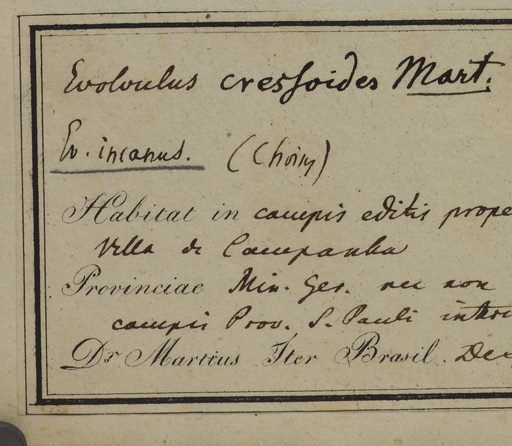 Evolvulus cressoides Mart.
Ev. incanus. (Choisy)
Habitat in campis editis prope
Villa de Campanha
Provinciae Min. Ger. nec non
campis Prov. S. Pauli
Dr. Martius Iter Brasil.